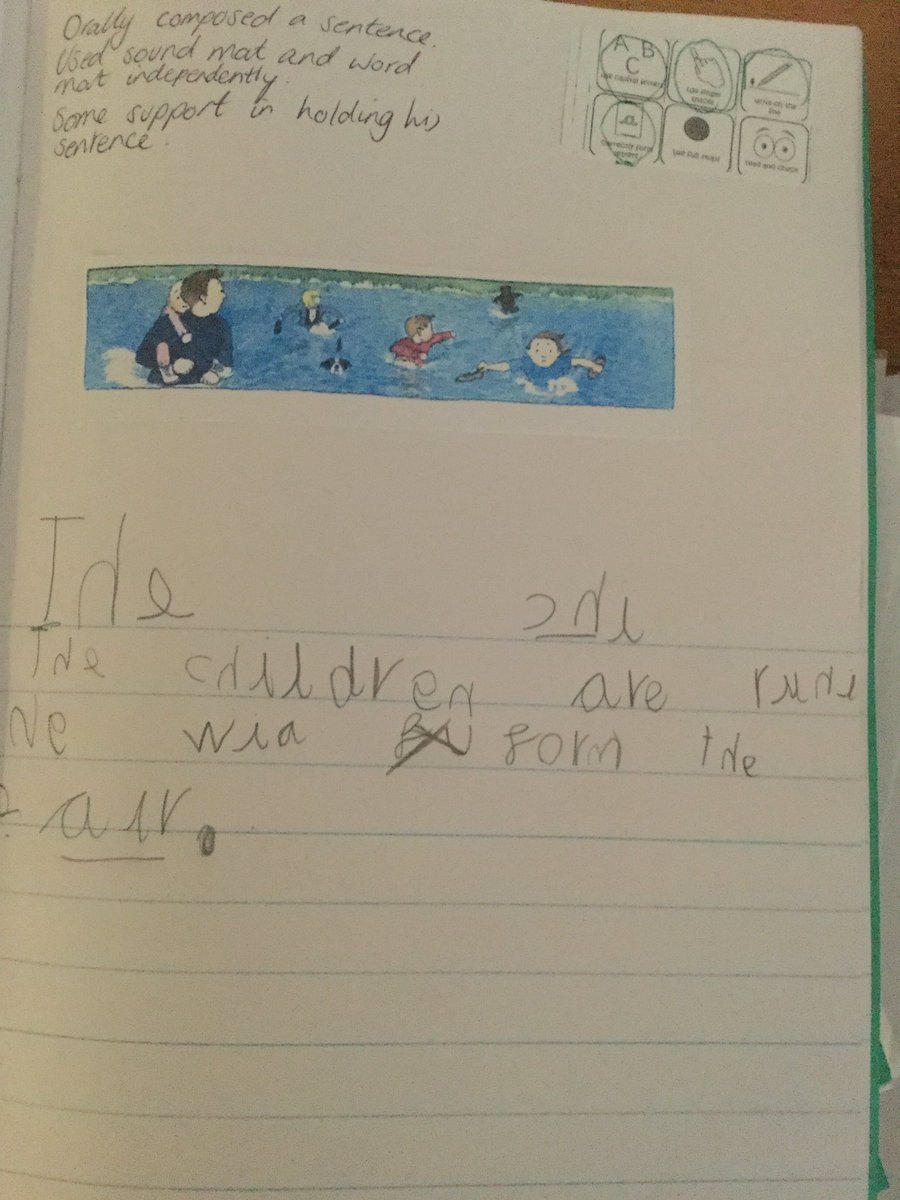 Orally composed a sentence.
Used sound mat and word
mat independently.
Some support in holding his
sentence.
A B C
use capital letters
use finger spaces
write on the line
correctly form letters
use full stops
read and check
The
The children are
wia form the
air.